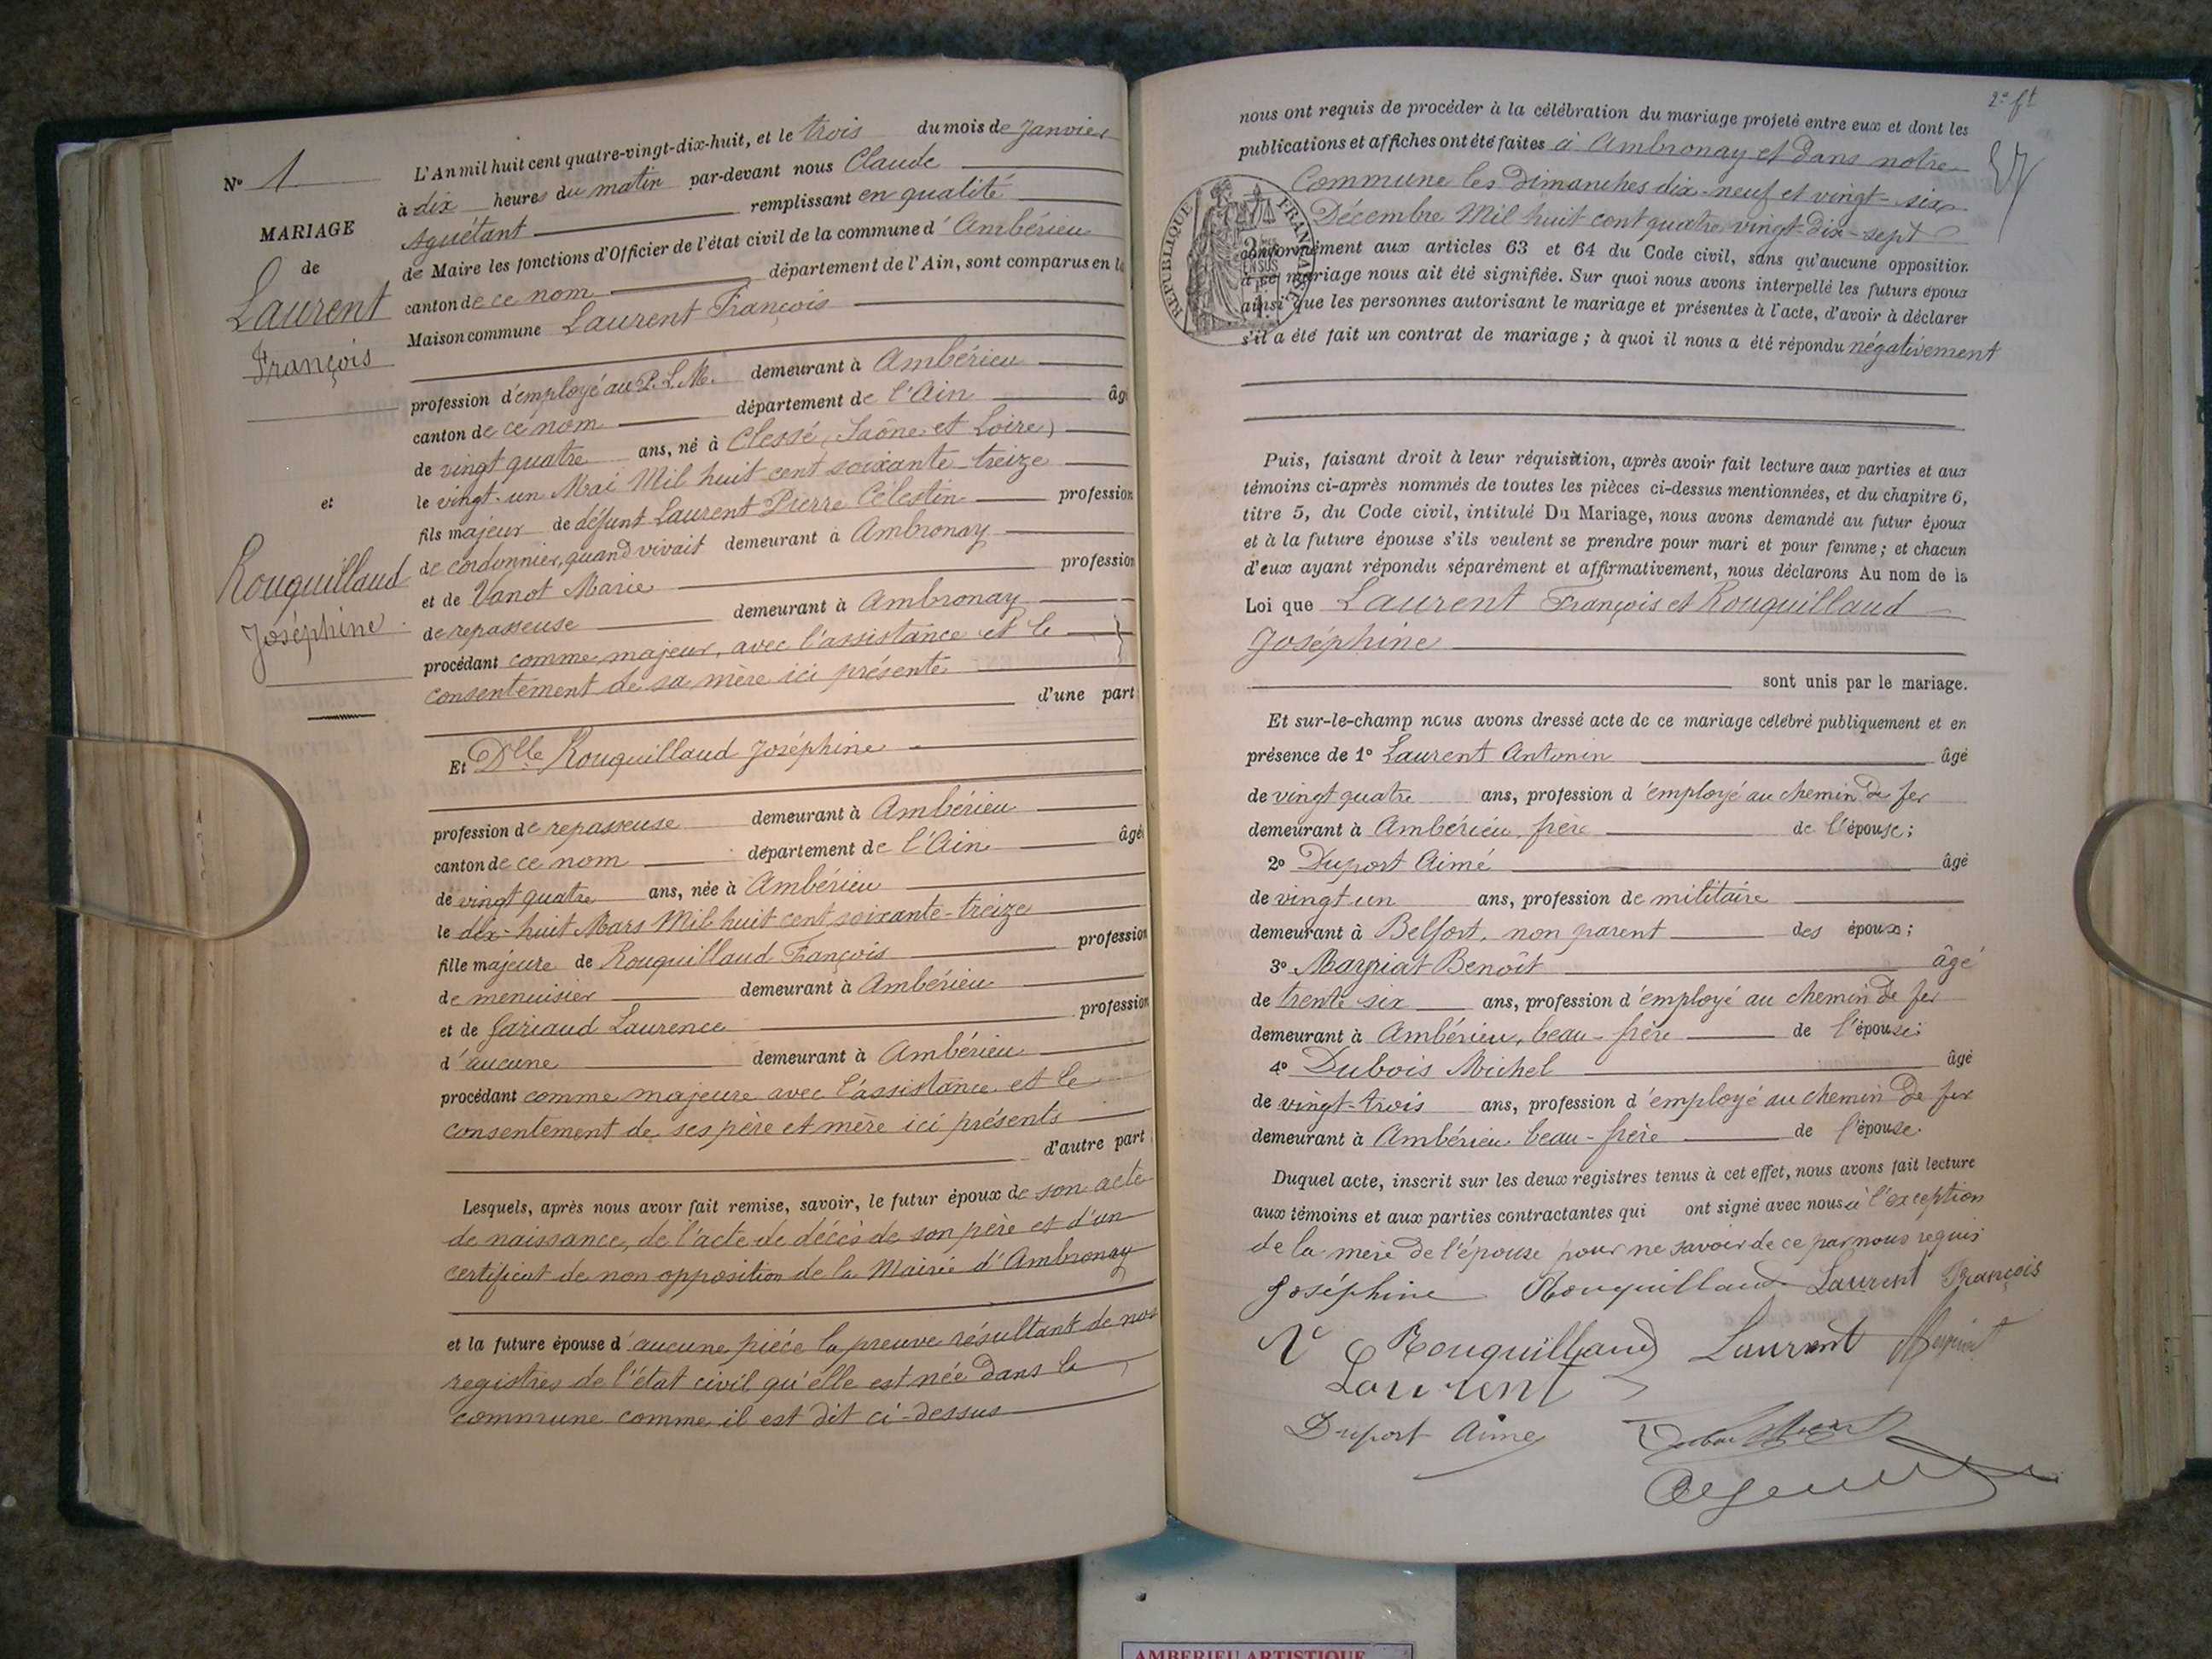 N° 1
MARIAGE
de
Laurent
François
et
Rouquillaud
Joséphine
L'An mil huit cent quatre-vingt-dix-huit, et le trois du mois de Janvier
à dix heures du matin par-devant nous Claude
Aguétant remplissant en qualité
de Maire les fonctions d'Officier de l'état civil de la commune d'Ambérieu
canton de ce nom département de l'Ain, sont comparus en la
Maison commune Laurent François
profession d'employé au P. L. M. demeurant à Ambérieu
canton de ce nom département de l'Ain âg
de vingt quatre ans, né à Clessé (Saône et Loire)
le vingt-un Mai Mil huit cent soixante-treize
fils majeur de défunt Laurent Pierre Célestin profession
de cordonnier, quand vivait demeurant à Ambronay
et de Vanot Marie profession
de repasseuse demeurant à Ambronay
procédant comme majeur, avec l'assistance et le
consentement de sa mère ici présente
d'une part
Et Dlle Rouquillaud Joséphine
profession de repasseuse demeurant à Ambérieu
canton de ce nom département de l'Ain âgé
de vingt quatre ans, née à Ambérieu
le dix-huit Mars Mil huit cent soixante-treize
fille majeure de Rouquillaud François profession
de menuisier demeurant à Ambérieu
et de Gariaud Laurence profession
d'aucune demeurant à Ambérieu
procédant comme majeure avec l'assistance et le
consentement de ses père et mère ici présents
d'autre part
Lesquels, après nous avoir fait remise, savoir, le futur époux de son acte
de naissance, de l'acte de décès de son père et d'un
certificat de non opposition de la Mairie d'Ambronay
et la future épouse d'aucune pièce la preuve résultant de nos
registres de l'état civil qu'elle est née dans la
commune comme il est dit ci-dessus
2e ft
nous ont requis de procéder à la célébration du mariage projeté entre eux et dont les
publications et affiches ont été faites à Ambronay et dans notre
Commune les Dimanches dix-neuf et vingt-six
Décembre Mil huit cent quatre vingt-dix-sept
conformément aux articles 63 et 64 du Code civil, sans qu'aucune opposition
à ce mariage nous ait été signifiée. Sur quoi nous avons interpellé les futurs époux
ainsi que les personnes autorisant le mariage et présentes à l'acte, d'avoir à déclarer
s'il a été fait un contrat de mariage ; à quoi il nous a été répondu négativement
RÉPUBLIQUE FRANÇAISE
Puis, faisant droit à leur réquisition, après avoir fait lecture aux parties et aux
témoins ci-après nommés de toutes les pièces ci-dessus mentionnées, et du chapitre 6,
titre 5, du Code civil, intitulé Du Mariage, nous avons demandé au futur époux
et à la future épouse s'ils veulent se prendre pour mari et pour femme ; et chacun
d'eux ayant répondu séparément et affirmativement, nous déclarons Au nom de la
Loi que Laurent François et Rouquillaud
Joséphine
sont unis par le mariage.
Et sur-le-champ nous avons dressé acte de ce mariage célébré publiquement et en
présence de 1° Laurent Antonin âgé
de vingt quatre ans, profession d'employé au chemin de fer
demeurant à Ambérieu, frère de l'épouse ;
2° Duport Aimé âgé
de vingt un ans, profession de militaire
demeurant à Belfort, non parent des époux ;
3° Mayriat Benoît âgé
de trente six ans, profession d'employé au chemin de fer
demeurant à Ambérieu, beau-frère de l'épouse ;
4° Dubois Michel âgé
de vingt-trois ans, profession d'employé au chemin de fer
demeurant à Ambérieu beau-frère de l'épouse.
Duquel acte, inscrit sur les deux registres tenus à cet effet, nous avons fait lecture
aux témoins et aux parties contractantes qui ont signé avec nous à l'exception
de la mère de l'épouse pour ne savoir de ce par nous requis
Joséphine Rouquillaud Laurent François
Ve Rouquillaud Laurent Mayriat
Laurent
Duport Aimé
AMBERIEU ARTISTIQUE